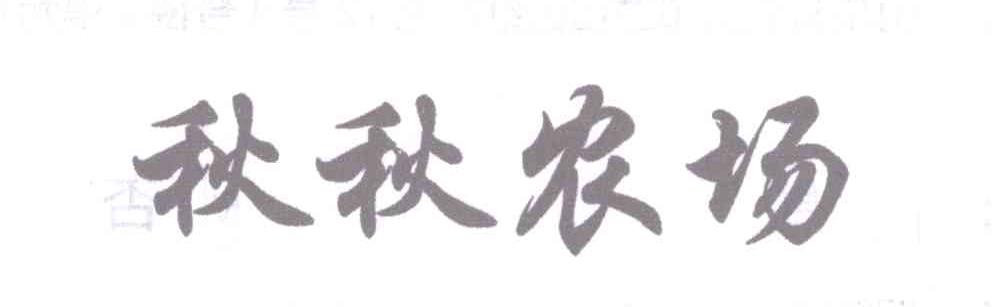 秋秋农场